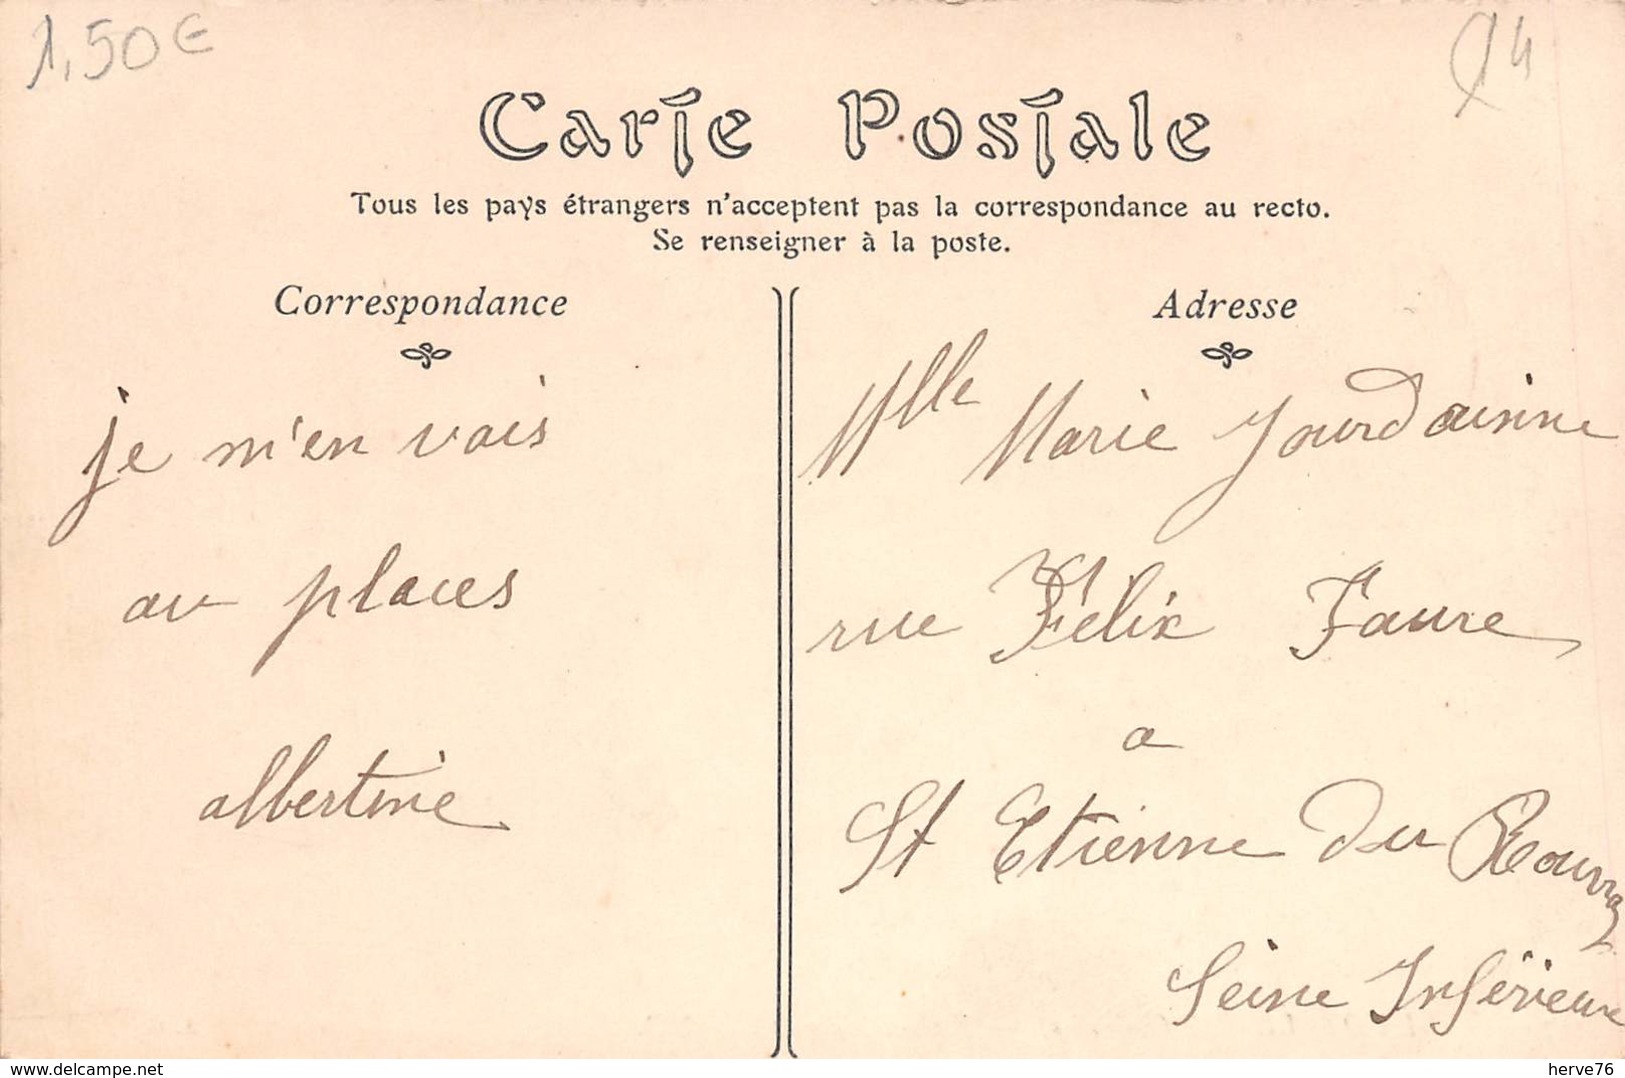 1,50€
14
Carte Postale
Tous les pays étrangers n'acceptent pas la correspondance au recto.
Se renseigner à la poste.
Correspondance
je m'en vais
au places
albertine
Adresse
Mlle Marie Jourdainne
rue Félix Faure
a
St Etienne du Rouvray
Seine Inférieure
delcampe.net
herve76